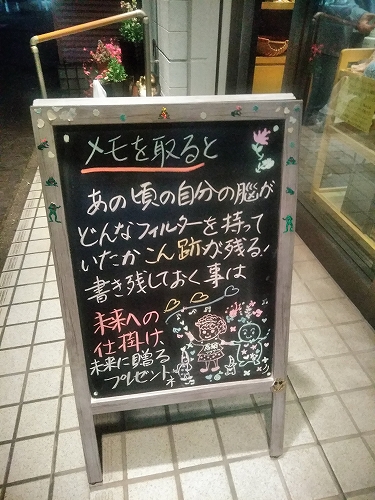 メモを取ると
あの頃の自分の脳が
どんなフィルターを持って
いたかこん跡が残る!
書き残しておく事は
未来への
仕掛け、
未来に贈る
プレゼント